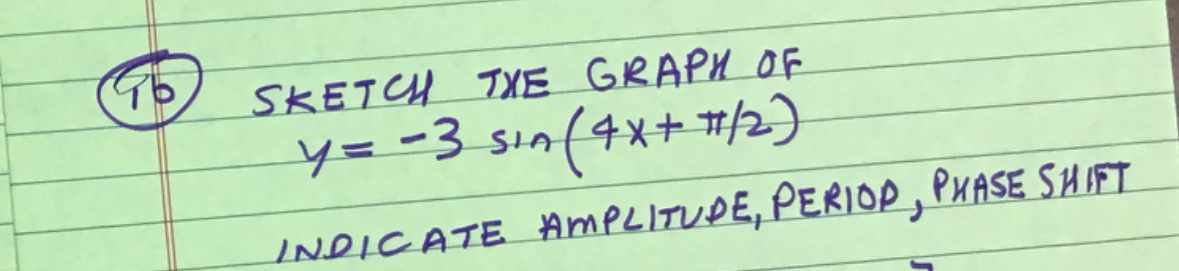 16 SKETCH THE GRAPH OF
y = -3 sin(4x + π/2)
INDICATE AMPLITUDE, PERIOD, PHASE SHIFT